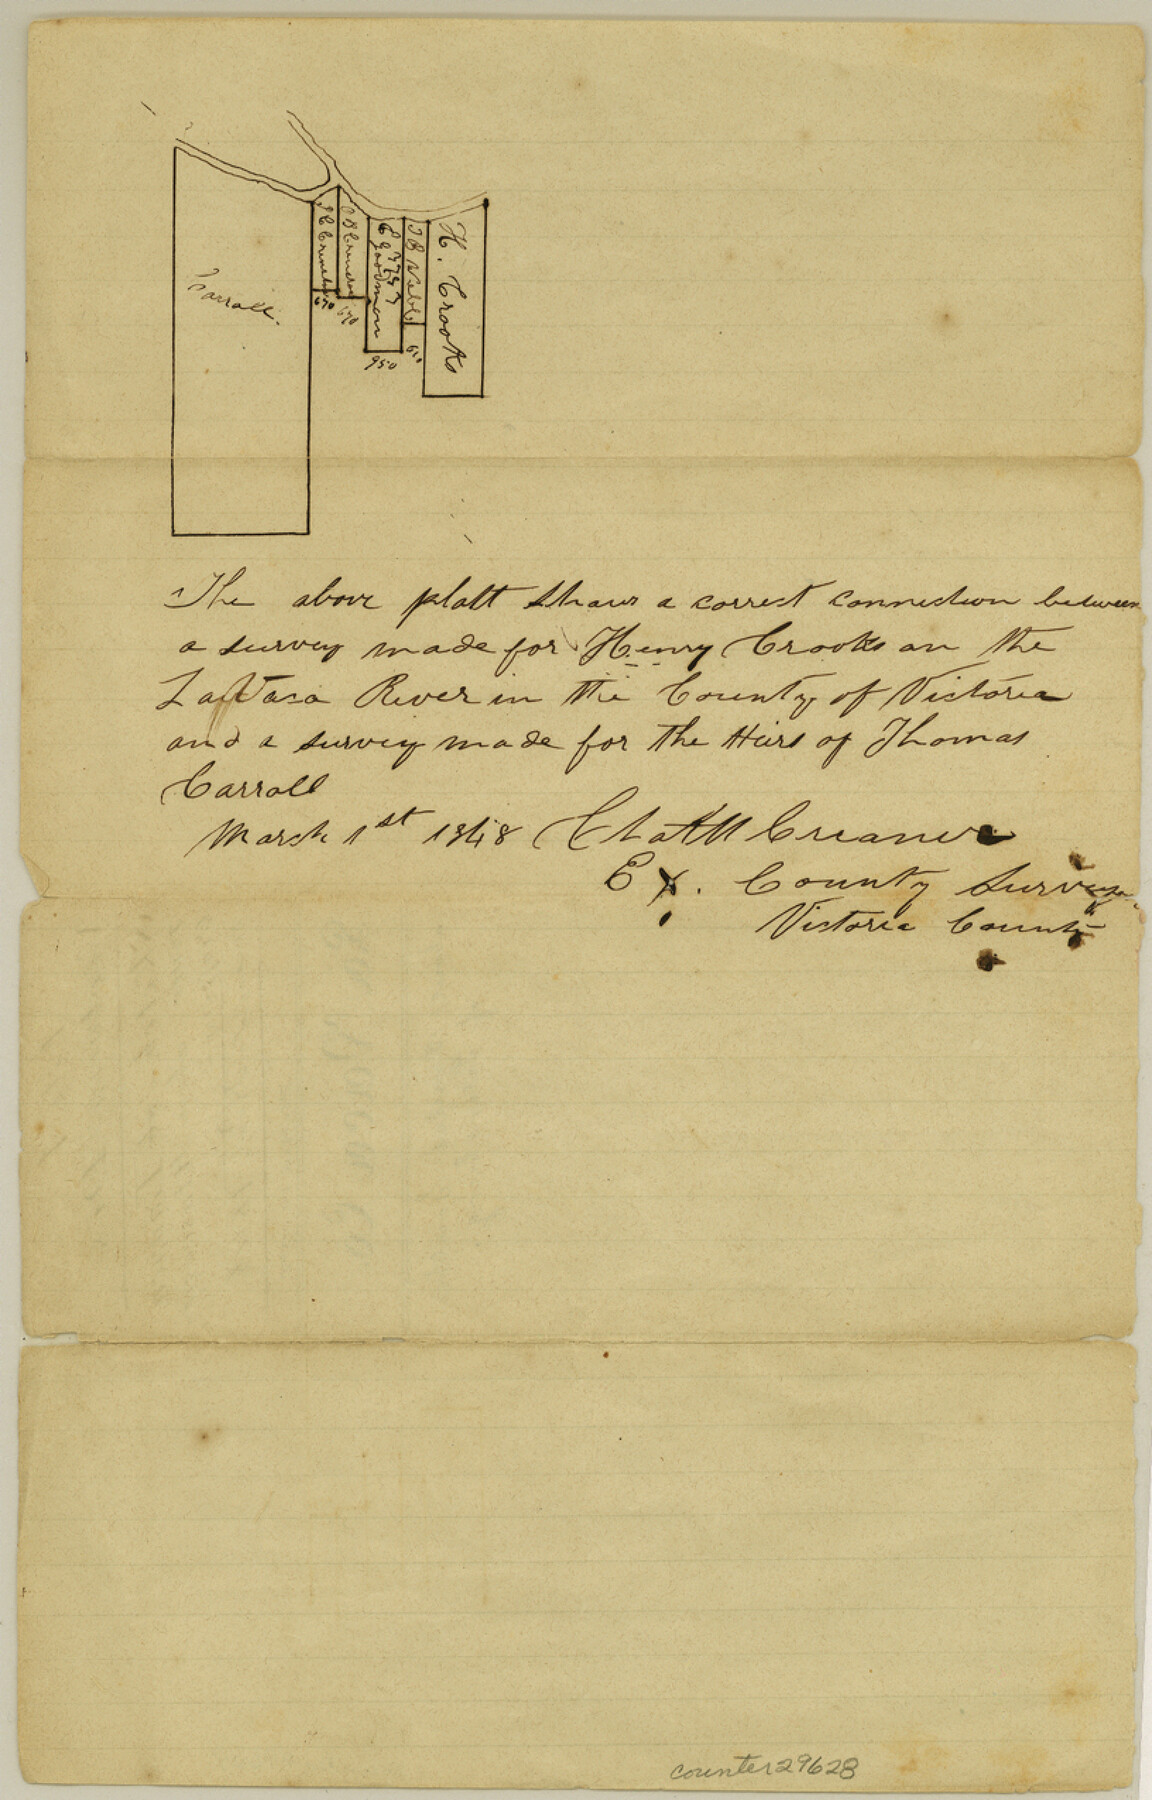 Carroll.
670
670
E Goodman
950
610
H. Crooks
The above platt Shows a correct connection between
a survey made for Henry Crooks on the
LaVaca River in the County of Victoria
and a survey made for the Heirs of Thomas
Carroll
March 1st 1848
Creaner
Ex. County Surveyor
Victoria County
counter 29628